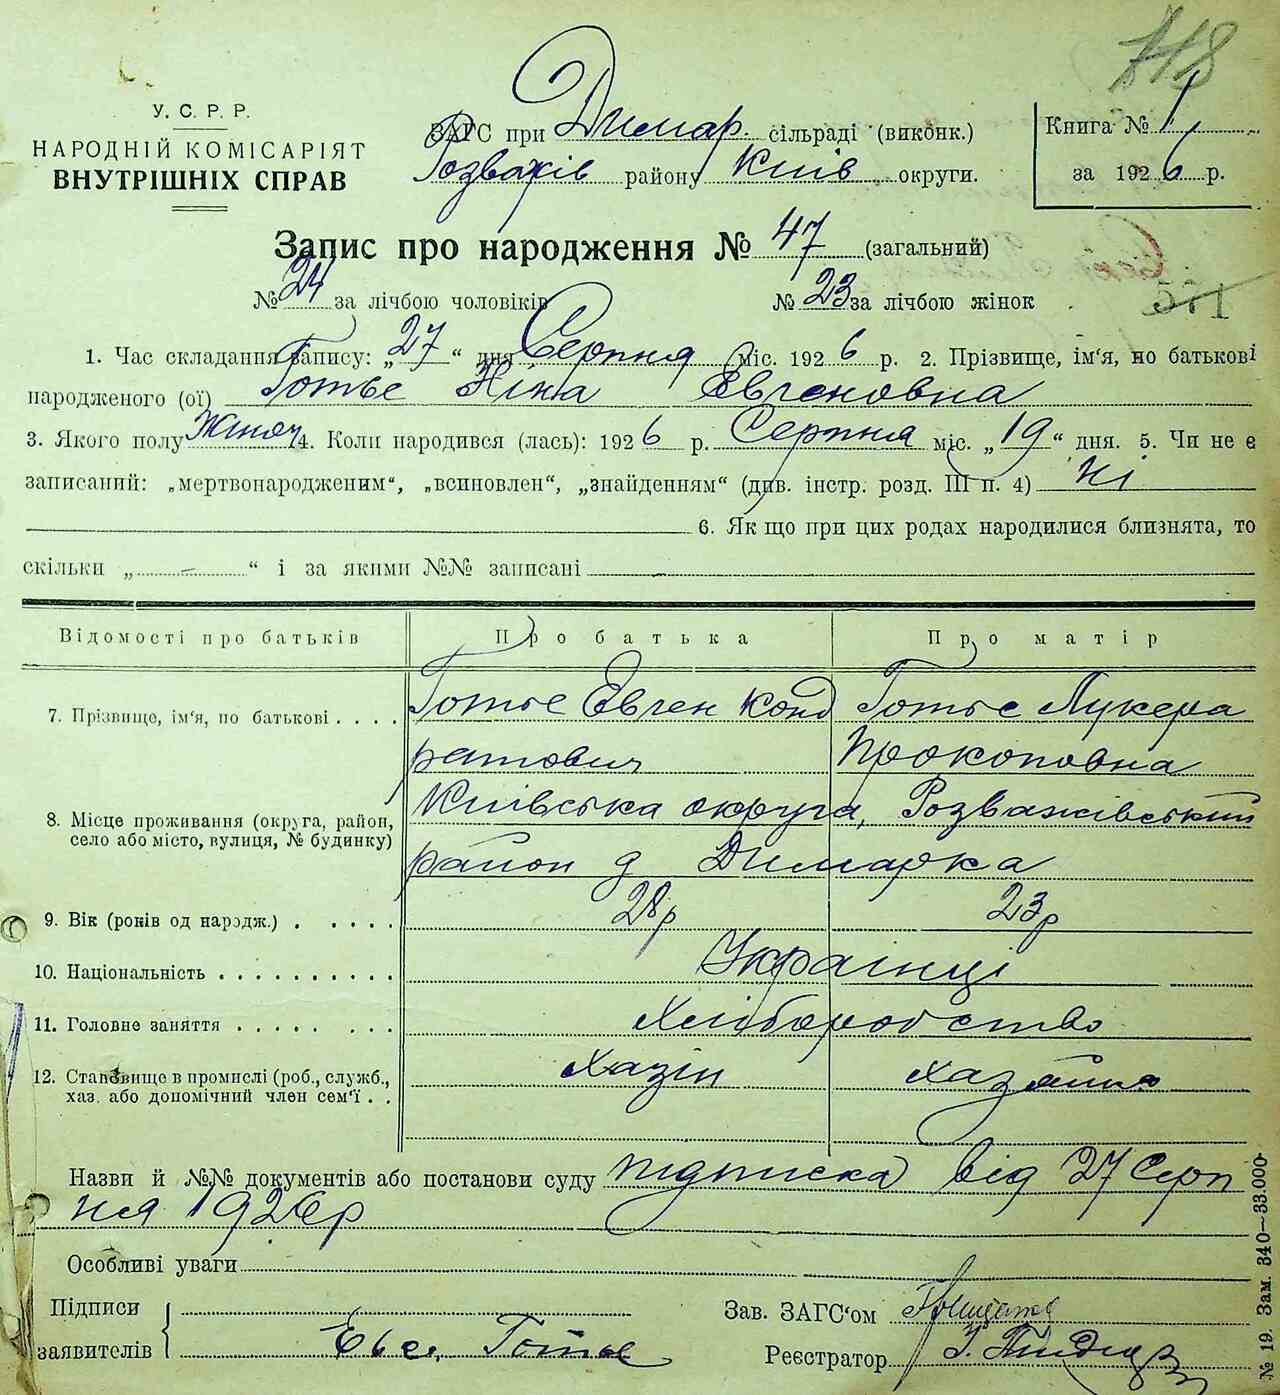 718
У. С. Р. Р.
НАРОДНІЙ КОМІСАРІЯТ
ВНУТРІШНІХ СПРАВ
ЗАГС при Димар. сільраді (виконк.)
Розважів району Київ округи.
Книга № 1
за 1926 р.
Запис про народження № 47 (загальний)
№ 24 за лічбою чоловіків № 23 за лічбою жінок
1. Час складання запису: „27“ дня Серпня міс. 1926 р. 2. Прізвище, ім'я, по батькові
народженого (ої) Готье Ніна Евгеновна
3. Якого полу Жіноч 4. Коли народився (лась): 1926 р. Серпня міс. „19“ дня. 5. Чи не є
записаний: „мертвонародженим“, „всиновлен“, „знайденням“ (див. інстр. розд. III п. 4) Ні
6. Як що при цих родах народилися близнята, то
скільки „ — “ і за якими №№ записані
Відомості про батьків Про батька Про матір
7. Прізвище, ім'я, по батькові . . . . Готье Евген Конд Готье Лукера
ратович Прокоповна
8. Місце проживання (округа, район, Київська округа, Розважівський
село або місто, вулиця, № будинку) район д Димарка
9. Вік (років од народж.) . . . . . 28р 23р
10. Національність . . . . . . . . . . Українці
11. Головне заняття . . . . . . . . . Хліборобство
12. Становище в промислі (роб., служб., Хазін Хазяйка
хаз. або допомічний член сем'ї . .
Назви й №№ документів або постанови суду підписка від 27 Серп
ня 1926р
Особливі уваги
Підписи Зав. ЗАГС'ом
заявителів Евг. Готье Реєстратор
№ 19. Зам. 340—33.000